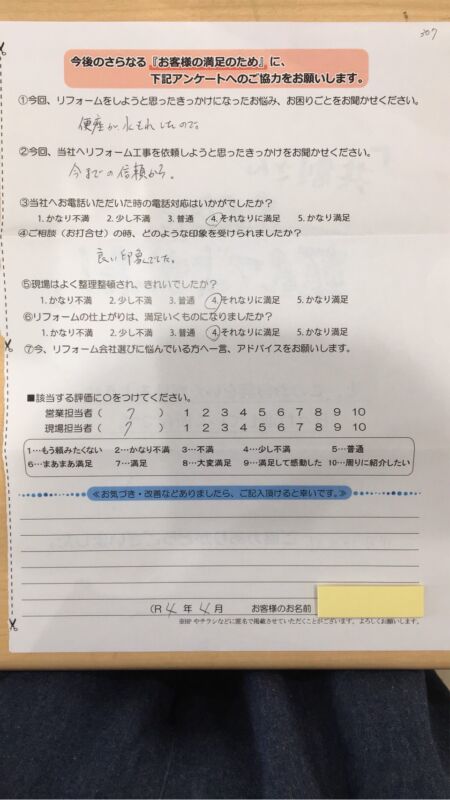 307
今後のさらなる『お客様の満足のため』に、
下記アンケートへのご協力をお願いします。
①今回、リフォームをしようと思ったきっかけになったお悩み、お困りごとをお聞かせください。
便座が水もれしたので。
②今回、当社へリフォーム工事を依頼しようと思ったきっかけをお聞かせください。
今までの信頼から。
③当社へお電話いただいた時の電話対応はいかがでしたか?
1.かなり不満 2.少し不満 3.普通 4.それなりに満足 5.かなり満足
④ご相談(お打合せ)の時、どのような印象を受けられましたか?
良い印象でした。
⑤現場はよく整理整頓され、きれいでしたか?
1.かなり不満 2.少し不満 3.普通 4.それなりに満足 5.かなり満足
⑥リフォームの仕上がりは、満足いくものになりましたか?
1.かなり不満 2.少し不満 3.普通 4.それなりに満足 5.かなり満足
⑦今、リフォーム会社選びに悩んでいる方へ一言、アドバイスをお願いします。
■該当する評価に○をつけてください。
営業担当者( 7 ) 1 2 3 4 5 6 7 8 9 10
現場担当者( 7 ) 1 2 3 4 5 6 7 8 9 10
1…もう頼みたくない 2…かなり不満 3…不満 4…少し不満 5…普通
6…まあまあ満足 7…満足 8…大変満足 9…満足して感動した 10…周りに紹介したい
≪お気づき・改善などありましたら、ご記入頂けると幸いです。≫
(R 4 年 4 月 お客様のお名前
※HPやチラシなどに匿名で掲載させていただくことがございます。よろしくお願いします。